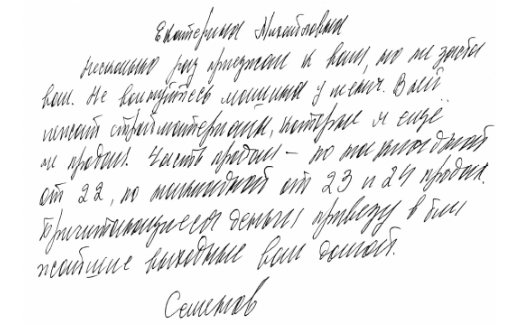 Екатерина Михайловна
Несколько раз приезжал к вам, но не застал
вас. Не волнуйтесь машина у меня. В ней
лежат стройматериалы, которые я ещё
не продал. Часть продал – по накладной
от 22, по накладной от 23 и 24 продал.
Причитающиеся деньги привезу в бли
жайшие выходные вам домой.
Семенов